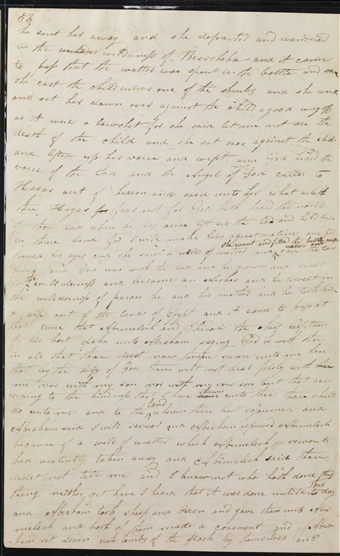 53
he sent her away and she departed and wandered
in the wilderness of Beersheba and it came
to pass that the watter was spent in the bottle and
she cast the child under one of the shrubs and she went
and set her down over against the child a good way off
as it were a bowshot for she said let me not see the
death of the child and she sat over against the child
and lifted up her voice and wept and God heard the
voice of the lad and the Angel of God called to
Hagar out of heaven and said unto her what aileth
thee Hagar fear not for God hath heard the voice
of the lad where he lies arise lift up the lad and hold him
in thine hand for I will make him a great nation and God
she went and filled the bottle with
opened her eyes and she saw a well of watter and gave the lad
drink and God was with the lad and he grew and
the wilderness and became an archer and he dwelt in
the wilderness of paran he and his mother and he took him
a wife out of the land of Egypt and it came to pass at
that time that Abimelech and Phicol the chief captain
of his host spake unto Abraham saying God is with thee
in all that thou doest now therefore swear unto me here
that by the help of God thou wilt not deal falsly with
me nor with my son nor with my sons son but that
according to the kindness that I have unto thee thou shalt
do unto me and to the land wherein thou hast sojourned and
Abraham said I will swear and Abraham reproved Abimelech
because of a well of watter which Abimelechs servants
had violently taken away and Abimelech said thou
didst not tell me and I know not who hath done this
thing neither yet have I heard that it was done untill to day
and Abraham took sheep and Oxen and gave them unto Abi
melech and both of them made a covenant and Abra
ham set seven ewe lambs of the flock by themselves and